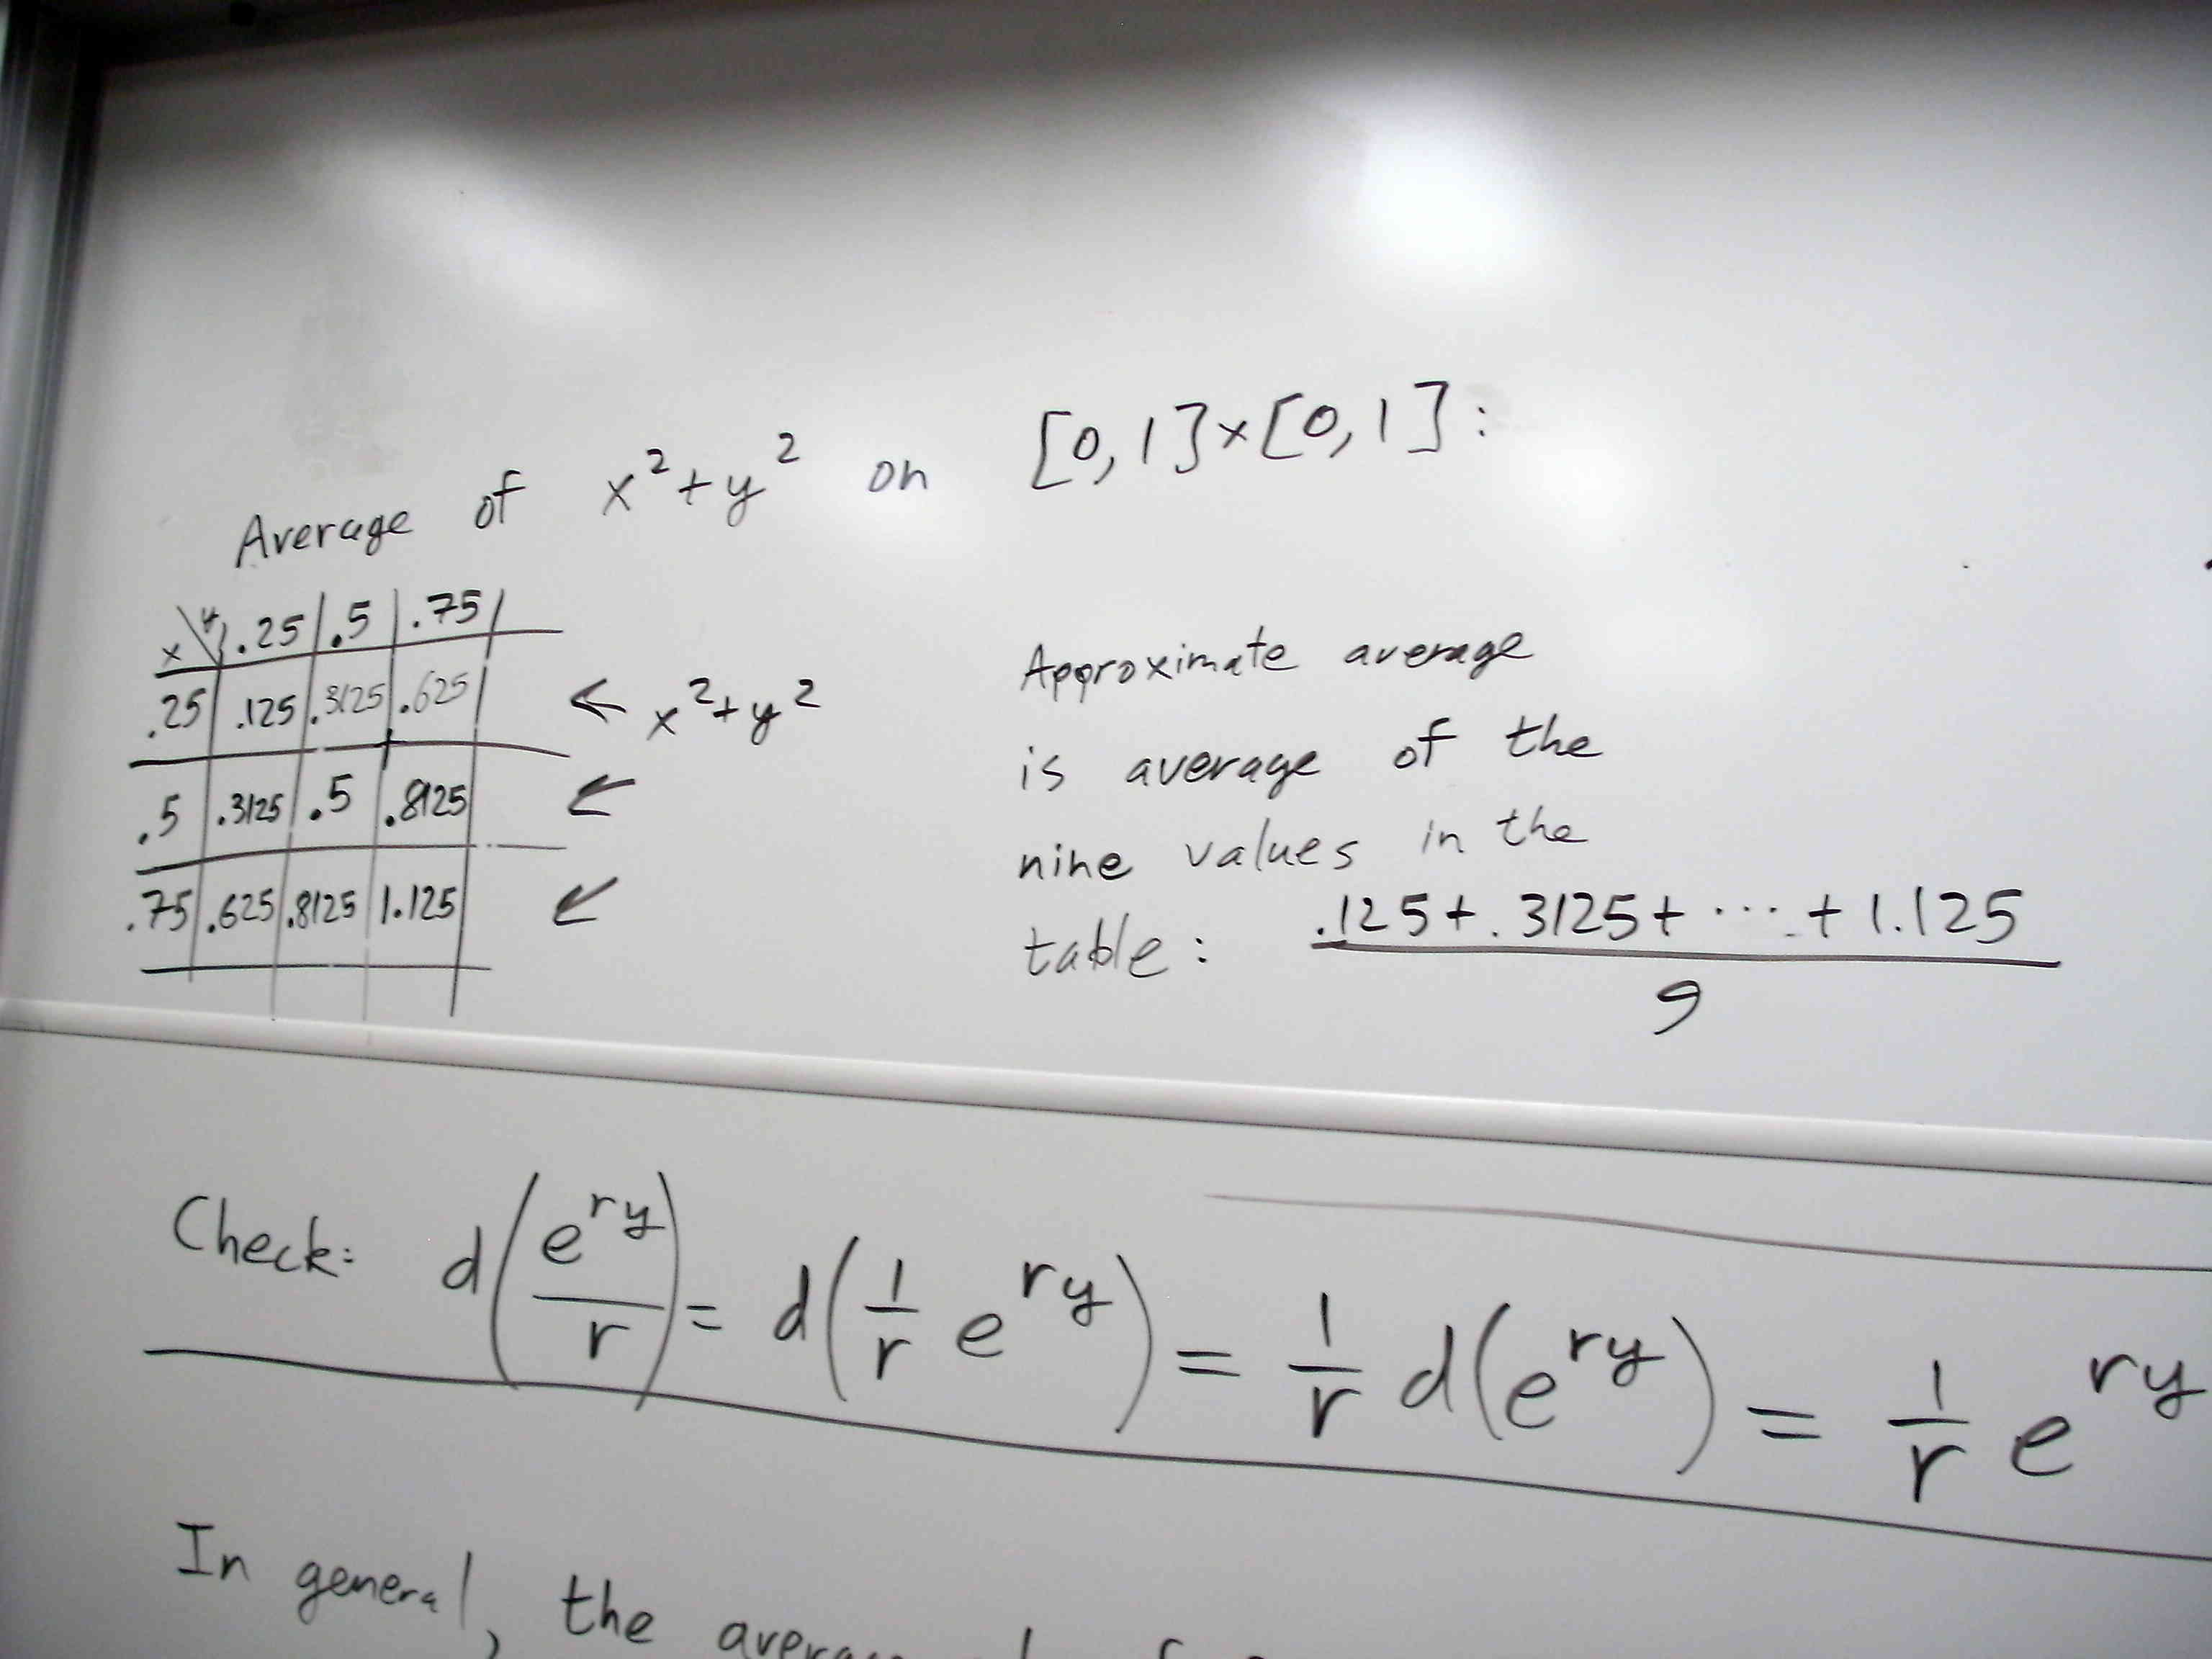 Average of x²+y² on [0,1]×[0,1]:
x\y .25 .5 .75
.25 .125 .3125 .625 ← x²+y²
.5 .3125 .5 .8125 ←
.75 .625 .8125 1.125 ←
Approximate average
is average of the
nine values in the
table: (.125+.3125+⋯+1.125)/9
Check: d(e^{ry}/r) = d(1/r e^{ry}) = 1/r d(e^{ry}) = 1/r e^{ry}
In general, the